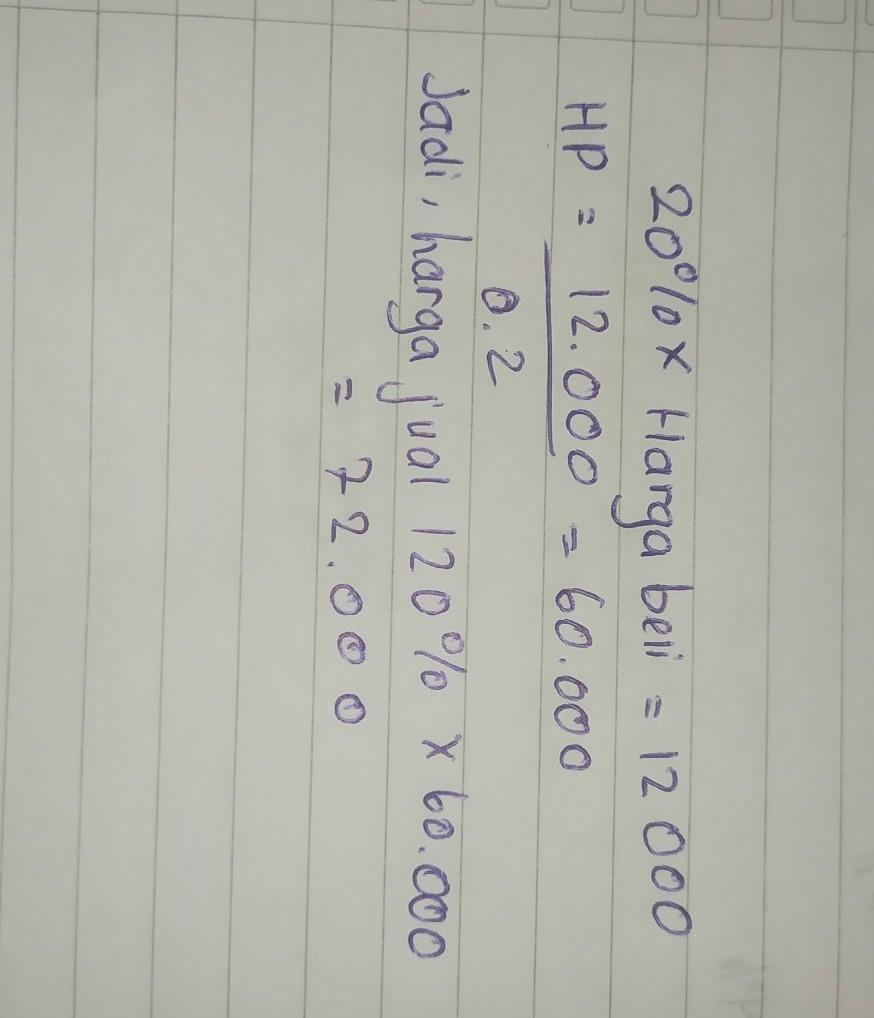 20% x Harga beli = 12 000
HP = 12.000 = 60.000
0.2
Jadi, harga jual 120% x 60.000
= 72.000